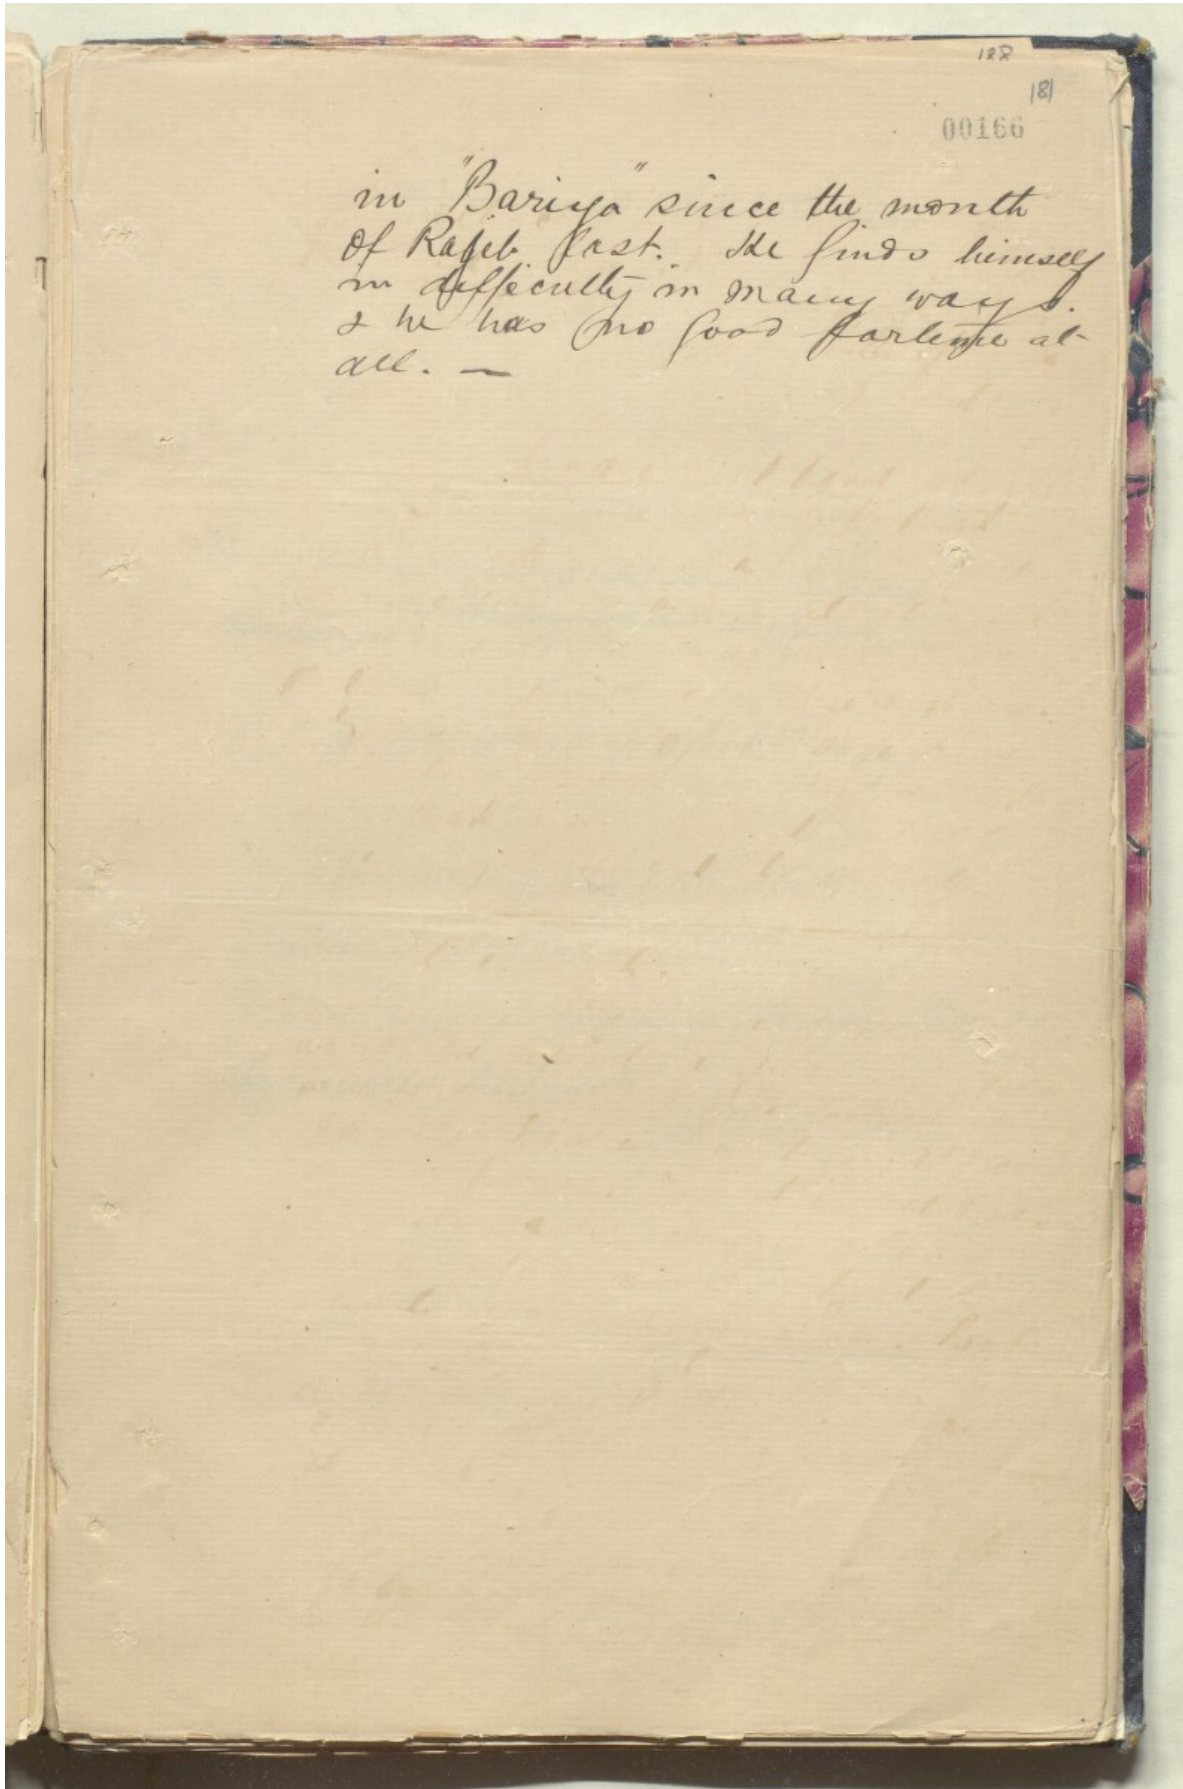 188
181
00166
in "Bariya" since the month
of Rajeb last. He finds himself
in difficulty in many ways.
& he has no good fortune at
all. —